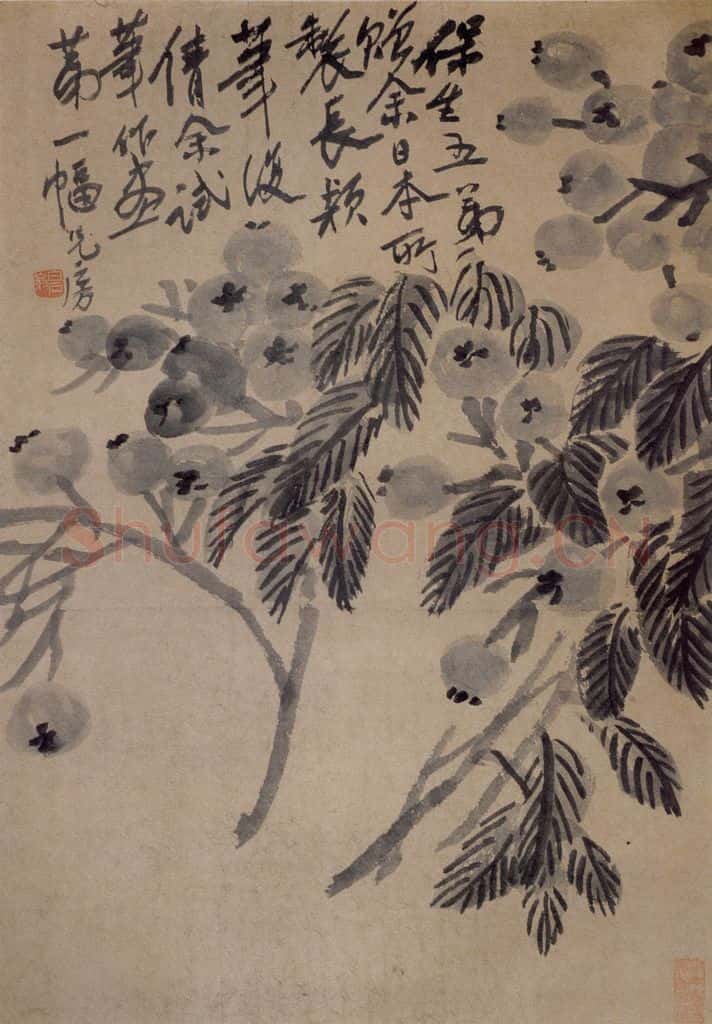 保生五弟
贈余日本所
製長穎
筆復
倩余試
筆作畫
第一幅
Shufawang.CN